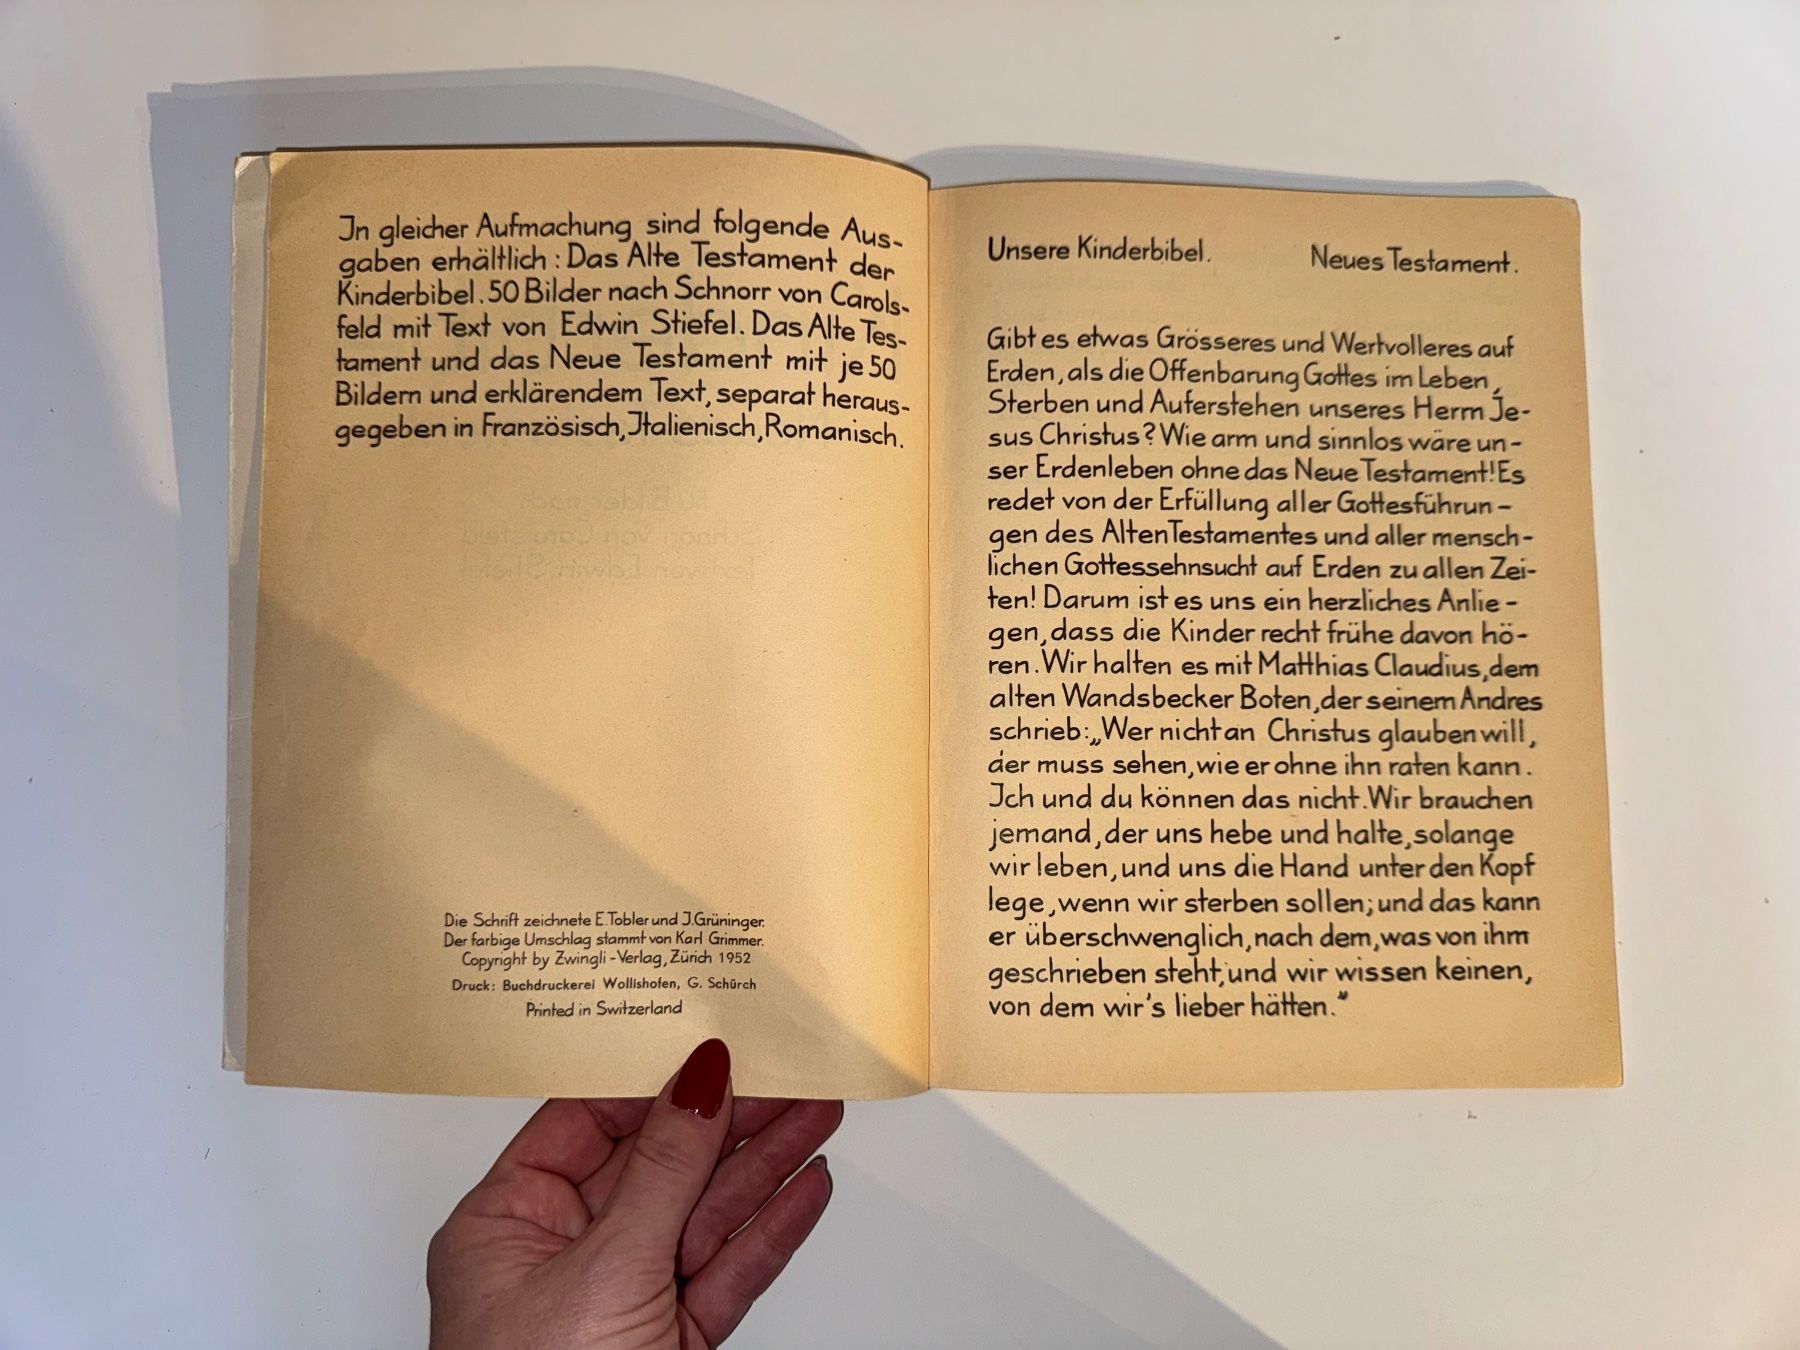 In gleicher Aufmachung sind folgende Aus-
gaben erhältlich: Das Alte Testament der
Kinderbibel. 50 Bilder nach Schnorr von Carols-
feld mit Text von Edwin Stiefel. Das Alte Tes-
tament und das Neue Testament mit je 50
Bildern und erklärendem Text, separat heraus-
gegeben in Französisch, Italienisch, Romanisch.
Die Schrift zeichnete E. Tobler und J. Grüninger.
Der farbige Umschlag stammt von Karl Grimmer.
Copyright by Zwingli-Verlag, Zürich 1952
Druck: Buchdruckerei Wollishofen, G. Schürch
Printed in Switzerland
Unsere Kinderbibel. Neues Testament.
Gibt es etwas Grösseres und Wertvolleres auf
Erden, als die Offenbarung Gottes im Leben,
Sterben und Auferstehen unseres Herrn Je-
sus Christus? Wie arm und sinnlos wäre un-
ser Erdenleben ohne das Neue Testament! Es
redet von der Erfüllung aller Gottesführun-
gen des Alten Testamentes und aller mensch-
lichen Gottessehnsucht auf Erden zu allen Zei-
ten! Darum ist es uns ein herzliches Anlie-
gen, dass die Kinder recht frühe davon hö-
ren. Wir halten es mit Matthias Claudius, dem
alten Wandsbecker Boten, der seinem Andres
schrieb: „Wer nicht an Christus glauben will,
der muss sehen, wie er ohne ihn raten kann.
Ich und du können das nicht. Wir brauchen
jemand, der uns hebe und halte, solange
wir leben, und uns die Hand unter den Kopf
lege, wenn wir sterben sollen; und das kann
er überschwenglich, nach dem, was von ihm
geschrieben steht, und wir wissen keinen,
von dem wir's lieber hätten."